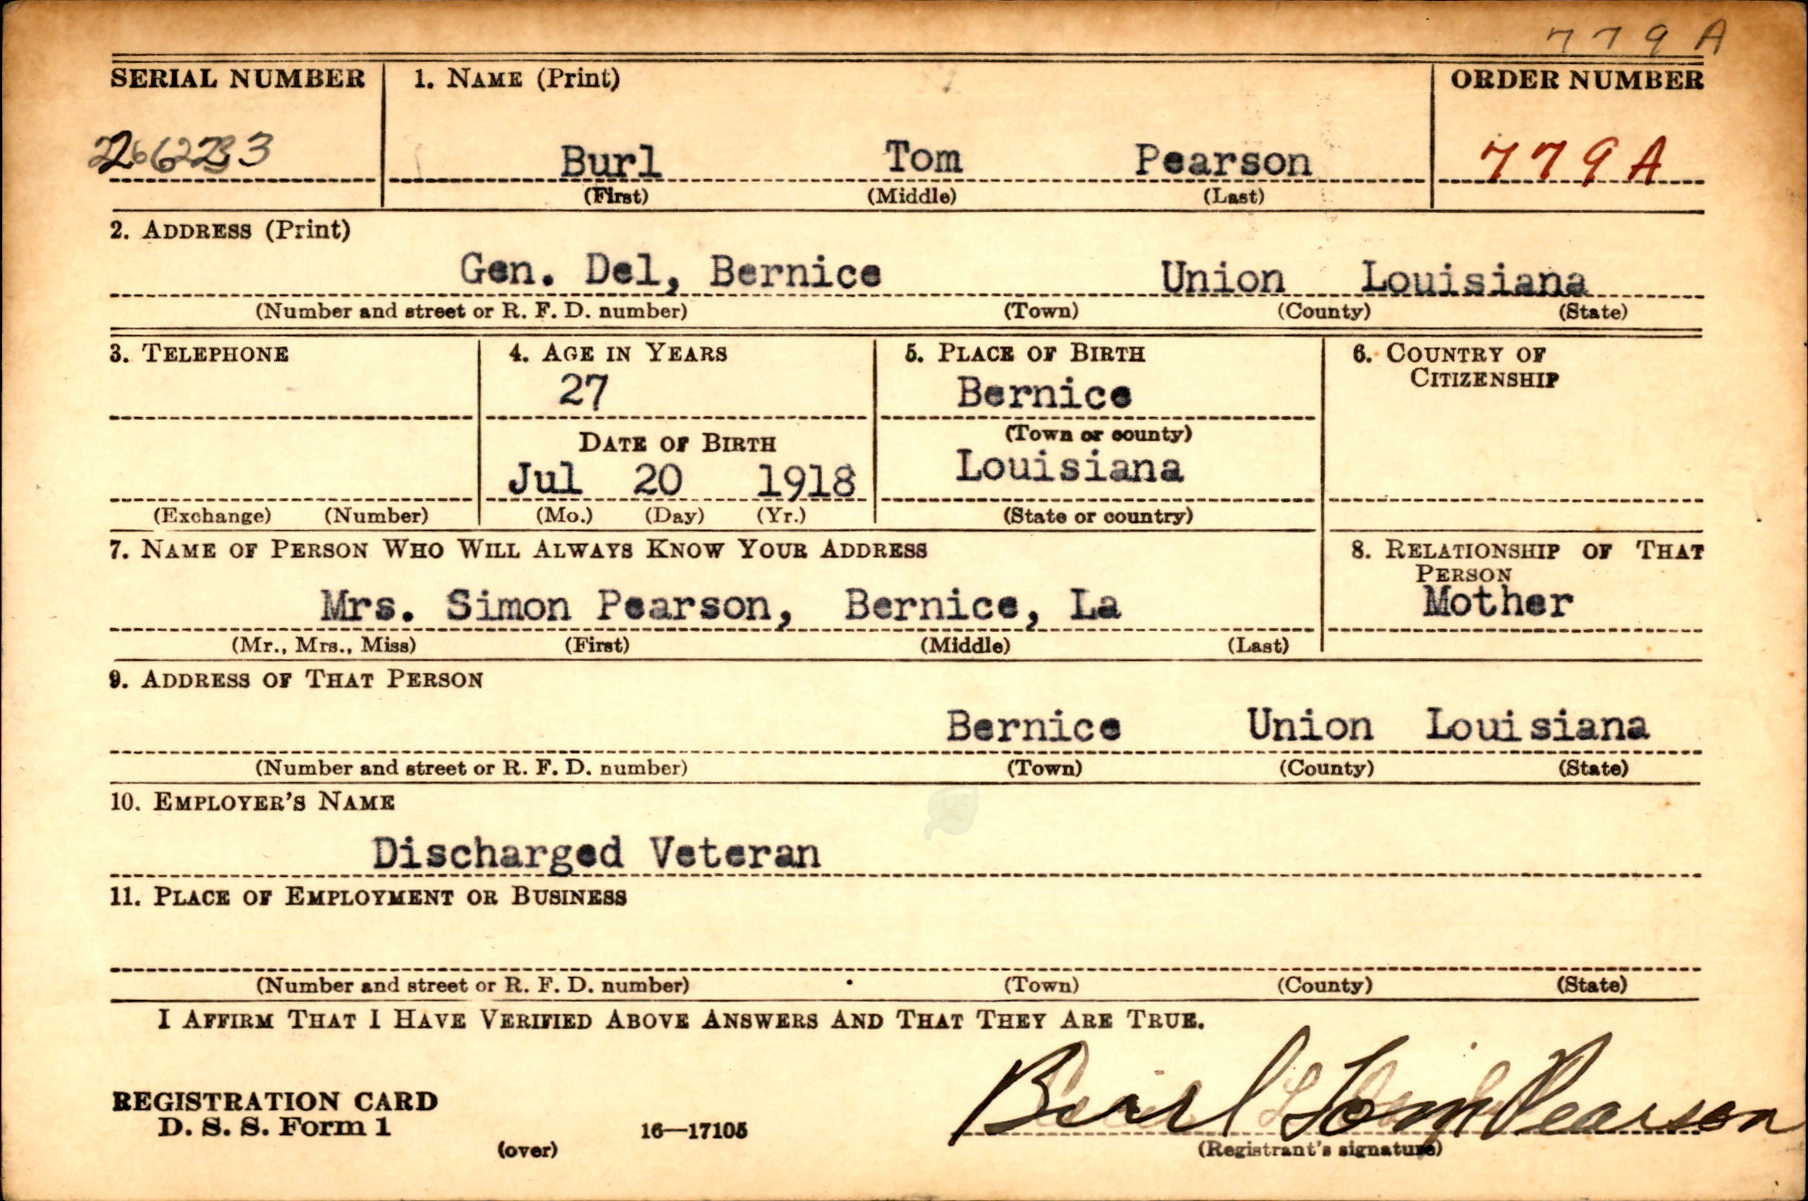 779A
SERIAL NUMBER 1. NAME (Print) ORDER NUMBER
Burl Tom Pearson 779A
(First) (Middle) (Last)
2. ADDRESS (Print)
Gen. Del, Bernice Union Louisiana
(Number and street or R. F. D. number) (Town) (County) (State)
3. TELEPHONE 4. AGE IN YEARS 5. PLACE OF BIRTH 6. COUNTRY OF
CITIZENSHIP
27 Bernice
(Town or county)
DATE OF BIRTH
Jul 20 1918 Louisiana
(Exchange) (Number) (Mo.) (Day) (Yr.) (State or country)
7. NAME OF PERSON WHO WILL ALWAYS KNOW YOUR ADDRESS 8. RELATIONSHIP OF THAT
PERSON
Mrs. Simon Pearson, Bernice, La Mother
(Mr., Mrs., Miss) (First) (Middle) (Last)
9. ADDRESS OF THAT PERSON
Bernice Union Louisiana
(Number and street or R. F. D. number) (Town) (County) (State)
10. EMPLOYER'S NAME
Discharged Veteran
11. PLACE OF EMPLOYMENT OR BUSINESS
(Number and street or R. F. D. number) (Town) (County) (State)
I AFFIRM THAT I HAVE VERIFIED ABOVE ANSWERS AND THAT THEY ARE TRUE.
Burl Tom Pearson
REGISTRATION CARD
D. S. S. Form 1
(over) 16—17105 (Registrant's signature)